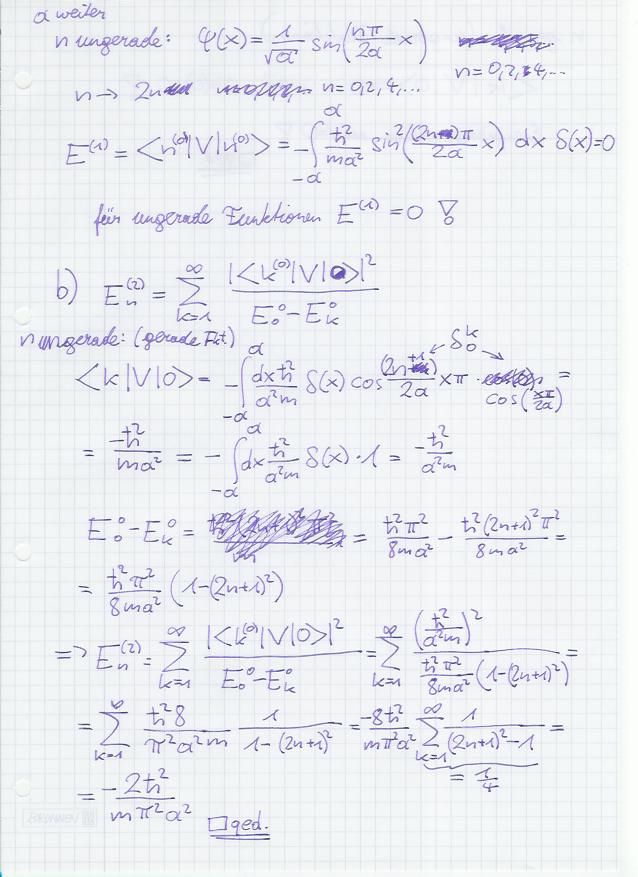 a weiter
n ungerade: φ(x) = 1/√a sin(nπ/2a x)
n = 0, 2, 4, ...
n → 2n n = 0, 2, 4, ...
E^(1) = <n^(0)|V|n^(0)> = -∫_{-a}^{a} ħ²/ma² sin²((2n)π/2a x) dx δ(x) = 0
für ungerade Funktionen E^(1) = 0 !
b) E_n^(2) = Σ_{k=1}^∞ |<k^(0)|V|0>|² / E_0^0 - E_k^0
n ungerade: (gerade Fkt)
δ_0^k
<k|V|0> = -∫_{-a}^{a} dxħ²/a²m δ(x) cos (2n+1)/2a xπ · cos(xπ/2a) =
= -ħ²/ma² = -∫_{-a}^{a} dx ħ²/a²m δ(x)·1 = -ħ²/a²m
E_0^0 - E_k^0 = = ħ²π²/8ma² - ħ²(2n+1)²π²/8ma² =
= ħ²π²/8ma² (1-(2n+1)²)
=> E_n^(2) = Σ_{k=1}^∞ |<k^(0)|V|0>|² / E_0^0 - E_k^0 = Σ_{k=1}^∞ (ħ²/a²m)² / ħ²π²/8ma² (1-(2n+1)²) =
= Σ_{k=1}^∞ ħ²8/π²a²m 1/1-(2n+1)² = -8ħ²/mπ²a² Σ_{k=1}^∞ 1/(2n+1)²-1 =
= 1/4
= -2ħ²/mπ²a²
□ qed.
BRUNNEN